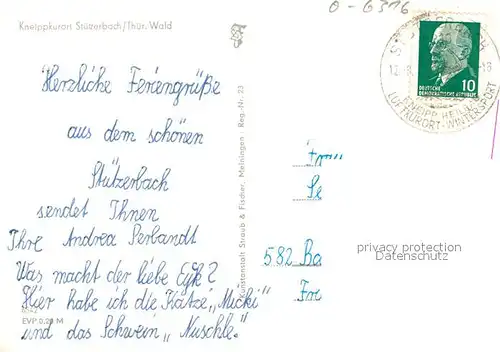 O-6316
Kneippkurort Stützerbach/Thür. Wald
Herzliche Feriengrüße
aus dem schönen
Stützerbach
sendet Ihnen
Ihre Andrea Perbandt
Was macht der liebe Eyk?
Hier habe ich die Katze „Micki"
und das Schwein „Nuschle."
EVP 0,20 M
Kunstanstalt Straub & Fischer, Meiningen · Reg.-Nr. 23
10
DEUTSCHE
DEMOKRATISCHE REPUBLIK
KNEIPP-HEILBAD
LUFTKURORT-WINTERSPORT
582 Ba
Fre
privacy protection
Datenschutz